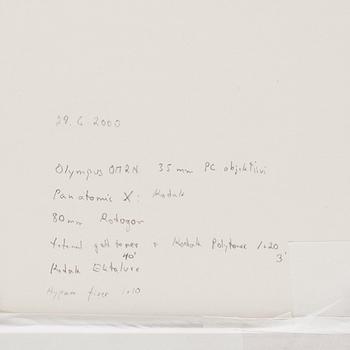 29.6.2000
Olympus OM2N 35 mm PC objektiivi
Panatomic X: Kodak
80mm Rodogon
gold toner + Kodak Polytoner 1:20
40' 3'
Kodak Ektalure
Hypam fixer 1:10